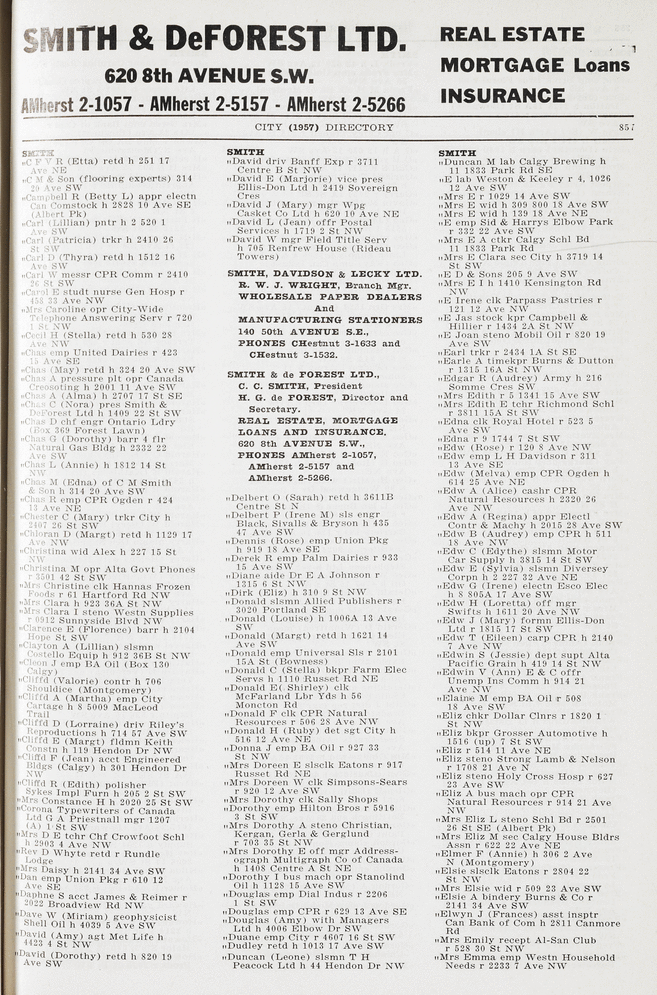 SMITH & DeFOREST LTD.
620 8th AVENUE S.W.
AMherst 2-1057 - AMherst 2-5157 - AMherst 2-5266
REAL ESTATE
MORTGAGE Loans
INSURANCE
CITY (1957) DIRECTORY 857
SMITH
"C F V R (Etta) retd h 251 17
Ave NE
"C M & Son (flooring exparts) 314
20 Ave SW
"Campbell R (Betty L) appr electn
Can Comstock h 2828 10 Ave SE
(Albert Pk)
"Carl (Lillian) pntr h 2 520 1
Ave SW
"Carl (Patricia) trkr h 2410 26
St SW
"Carl D (Thyra) retd h 1512 16
Ave SW
"Carl W messr CPR Comm r 2410
26 St SW
"Carol E studt nurse Gen Hosp r
458 33 Ave NW
"Mrs Caroline opr City-Wide
Telephone Answering Serv r 720
1 St NW
"Cecil H (Stella) retd h 530 28
Ave NW
"Chas emp United Dairies r 423
15 Ave SE
"Chas (May) retd h 324 20 Ave SW
"Chas A pressure plt opr Canada
Creosoting h 2001 11 Ave SW
"Chas A (Alma) h 2707 17 St SE
"Chas C (Nora) pres Smith &
DeForest Ltd h 1409 22 St SW
"Chas D chf engr Ontario Ldry
(Box 369 Forest Lawn)
"Chas G (Dorothy) barr 4 flr
Natural Gas Bldg h 2332 22
Ave SW
"Chas L (Annie) h 1812 14 St
NW
"Chas M (Edna) of C M Smith
& Son h 314 20 Ave SW
"Chas R emp CPR Ogden r 424
13 Ave NE
"Chester C (Mary) trkr City h
3407 26 St SW
"Chloran D (Margt) retd h 1129 17
Ave NW
"Christina wid Alex h 227 15 St
NW
"Christina M opr Alta Govt Phones
r 3501 42 St SW
"Mrs Christine clk Hannas Frozen
Foods r 61 Hartford Rd NW
"Mrs Clara h 923 36A St NW
"Mrs Clara I steno Westn Supplies
r 0912 Sunnyside Blvd NW
"Clarence E (Florence) barr h 2104
Hope St SW
"Clayton A (Lillian) slsmn
Costello Equip h 912 36B St NW
"Cleon J emp BA Oil (Box 130
Calgy)
"Cliffd (Valorie) contr h 706
Shouldice (Montgomery)
"Cliffd A (Martha) emp City
Cartage h 8 5009 MacLeod
Trail
"Cliffd D (Lorraine) driv Riley's
Reproductions h 714 57 Ave SW
"Cliffd E (Margt) fldmn Keith
Constn h 119 Hendon Dr NW
"Cliffd F (Jean) acct Engineered
Bldgs (Calgy) h 301 Hendon Dr
NW
"Cliffd R (Edith) polisher
Sykes Impl Furn h 205 2 St SW
"Mrs Constance H h 2020 25 St SW
"Corona Typewriters of Canada
Ltd G A Priestnall mgr 1207
(A) 1 St SW
"Mrs D E tchr Chf Crowfoot Schl
h 2903 4 Ave NW
"Rev D Whyte retd r Rundle
Lodge
"Mrs Daisy h 2141 34 Ave SW
"Dan emp Union Pkg r 610 12
Ave SE
"Daphne S acct James & Reimer r
2022 Broadview Rd NW
"Dave W (Miriam) geophysicist
Shell Oil h 4039 5 Ave SW
"David (Amy) agt Met Life h
4423 4 St NW
"David (Dorothy) retd h 820 19
Ave SW
SMITH
"David driv Banff Exp r 3711
Centre B St NW
"David E (Marjorie) vice pres
Ellis-Don Ltd h 2419 Sovereign
Cres
"David J (Mary) mgr Wpg
Casket Co Ltd h 620 10 Ave NE
"David L (Jean) offr Postal
Services h 1719 2 St NW
"David W mgr Field Title Serv
h 705 Renfrew House (Rideau
Towers)
SMITH, DAVIDSON & LECKY LTD.
R. W. J. WRIGHT, Branch Mgr.
WHOLESALE PAPER DEALERS
And
MANUFACTURING STATIONERS
140 50th AVENUE S.E.,
PHONES CHestnut 3-1633 and
CHestnut 3-1532.
SMITH & de FOREST LTD.,
C. C. SMITH, President
H. G. de FOREST, Director and
Secretary.
REAL ESTATE, MORTGAGE
LOANS AND INSURANCE,
620 8th AVENUE S.W.,
PHONES AMherst 2-1057,
AMherst 2-5157 and
AMherst 2-5266.
"Delbert O (Sarah) retd h 3611B
Centre St N
"Delbert P (Irene M) sls engr
Black, Sivalls & Bryson h 435
47 Ave SW
"Dennis (Rose) emp Union Pkg
h 919 18 Ave SE
"Derek R emp Palm Dairies r 933
15 Ave SW
"Diane aide Dr E A Johnson r
1315 6 St NW
"Dirk (Eliz) h 310 9 St NW
"Donald slsmn Allied Publishers r
3020 Portland SE
"Donald (Louise) h 1006A 13 Ave
SW
"Donald (Margt) retd h 1621 14
Ave SW
"Donald emp Universal Sls r 2101
15A St (Bowness)
"Donald C (Stella) bkpr Farm Elec
Servs h 1110 Russet Rd NE
"Donald E( Shirley) clk
McFarland Lbr Yds h 56
Moncton Rd
"Donald F clk CPR Natural
Resources r 506 28 Ave NW
"Donald H (Ruby) det sgt City h
516 12 Ave NE
"Donna J emp BA Oil r 927 33
St NW
"Mrs Doreen E slsclk Eatons r 917
Russet Rd NE
"Mrs Doreen W clk Simpsons-Sears
r 920 12 Ave SW
"Mrs Dorothy clk Sally Shops
"Dorothy emp Hilton Bros r 5916
3 St SW
"Mrs Dorothy A steno Christian,
Kergan, Gerla & Gerglund
r 703 35 St NW
"Mrs Dorothy E off mgr Address-
ograph Multigraph Co of Canada
h 1408 Centre A St NE
"Dorothy I bus mach opr Stanolind
Oil h 1128 15 Ave SW
"Douglas emp Dial Indus r 2206
1 St SW
"Douglas emp CPR r 629 13 Ave SE
"Douglas (Amy) with Managers
Ltd h 4006 Elbow Dr SW
"Duane emp City r 4607 16 St SW
"Dudley retd h 1013 17 Ave SW
"Duncan (Leone) slsmn T H
Peacock Ltd h 44 Hendon Dr NW
SMITH
"Duncan M lab Calgy Brewing h
11 1833 Park Rd SE
"E lab Weston & Keeley r 4, 1026
12 Ave SW
"Mrs E r 1029 14 Ave SW
"Mrs E wid h 309 800 18 Ave SW
"Mrs E wid h 139 18 Ave NE
"E emp Sid & Harrys Elbow Park
r 332 22 Ave SW
"Mrs E A ctkr Calgy Schl Bd
11 1833 Park Rd
"Mrs E Clara sec City h 3719 14
St SW
"E D & Sons 205 9 Ave SW
"Mrs E I h 1410 Kensington Rd
NW
"E Irene clk Parpass Pastries r
121 12 Ave NW
"E Jas stock kpr Campbell &
Hillier r 1434 2A St NW
"E Joan steno Mobil Oil r 820 19
Ave SW
"Earl trkr r 2434 1A St SE
"Earle A timekpr Burns & Dutton
r 1315 16A St NW
"Edgar R (Audrey) Army h 216
Somme Cres SW
"Mrs Edith r 5 1341 15 Ave SW
"Mrs Edith E tchr Richmond Schl
r 3811 15A St SW
"Edna clk Royal Hotel r 523 5
Ave SW
"Edna r 9 1744 7 St SW
"Edw (Rose) r 120 8 Ave NW
"Edw emp L H Davidson r 311
13 Ave SE
"Edw (Melva) emp CPR Ogden h
614 25 Ave NE
"Edw A (Alice) cashr CPR
Natural Resources h 2320 26
Ave NW
"Edw A (Regina) appr Electl
Contr & Machy h 2015 28 Ave SW
"Edw B (Audrey) emp CPR h 511
18 Ave NW
"Edw C (Edythe) slsmn Motor
Car Supply h 3815 14 St SW
"Edw E (Sylvia) slsmn Diversey
Corpn h 2 227 32 Ave NE
"Edw G (Irene) electn Esco Elec
h 8 805A 17 Ave SW
"Edw H (Loretta) off mgr
Swifts h 1611 20 Ave NW
"Edw J (Mary) formn Ellis-Don
Ltd r 1815 17 St SW
"Edw T (Eileen) carp CPR h 2140
7 Ave NW
"Edwin S (Jessie) dept supt Alta
Pacific Grain h 419 14 St NW
"Edwin V (Ann) E & C offr
Unemp Ins Comm h 914 21
Ave NW
"Elaine M emp BA Oil r 508
18 Ave SW
"Eliz chkr Dollar Clnrs r 1820 1
St NW
"Eliz bkpr Grosser Automotive h
1516 (up) 7 St SW
"Eliz r 514 11 Ave NE
"Eliz steno Strong Lamb & Nelson
r 1708 21 Ave N
"Eliz steno Holy Cross Hosp r 627
23 Ave SW
"Eliz A bus mach opr CPR
Natural Resources r 914 21 Ave
NW
"Mrs Eliz L steno Schl Bd r 2501
26 St SE (Albert Pk)
"Mrs Eliz M sec Calgy House Bldrs
Assn r 622 22 Ave NE
"Elmer F (Annie) h 306 2 Ave
N (Montgomery)
"Elsie slsclk Eatons r 2804 22
St NW
"Mrs Elsie wid r 509 23 Ave SW
"Elsie A bindery Burns & Co r
2141 34 Ave SW
"Elwyn J (Frances) asst insptr
Can Bank of Com h 2811 Canmore
Rd
"Mrs Emily recept Al-San Club
r 528 30 St NW
"Mrs Emma emp Westn Household
Needs r 2233 7 Ave NW